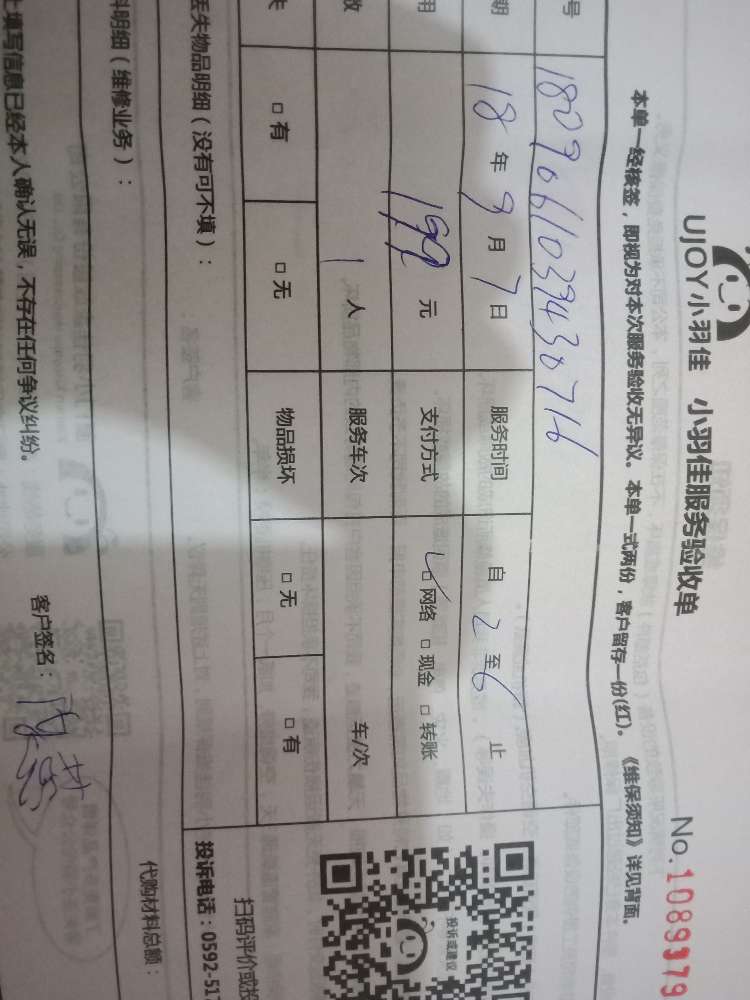 UJOY小羽佳 小羽佳服务验收单 No.1089979
本单一经核签,即视为对本次服务验收无异议。本单一式两份,客户留存一份(红)。《维保须知》详见背面。
号 1809061039430716
期 18年9月7日 服务时间 自2至6止
用 199元 支付方式 ☑网络 □现金 □转账
数 1人 服务车次 车/次
失 □有 □无 物品损坏 □无 □有
丢失物品明细(没有可不填):
料明细(维修业务):
上填写信息已经本人确认无误,不存在任何争议纠纷。 客户签名:
投诉或建议
扫码评价或投
投诉电话:0592-517
代购材料总额: